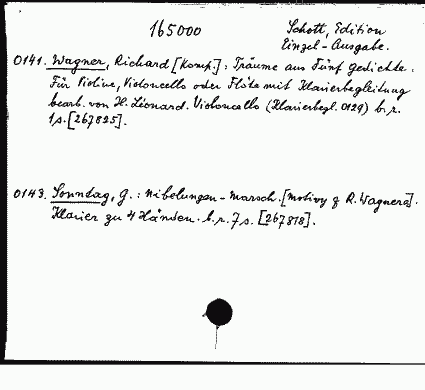 165000
Schott, Edition
Einzel-Ausgabe.
0141. Wagner, Richard [Komp.]: Träume aus Fünf Gedichte.
Für Violine, Violoncello oder Flöte mit Klavierbegleitung
bearb. von H. Léonard. Violoncello (Klavierbegl. 0129) b.r.
1 s. [267825].
0143. Sonntag, G.: Nibelungen-Marsch. [Motivy z R. Wagnera].
Klavier zu 4 Händen. b.r. 7 s. [267818].